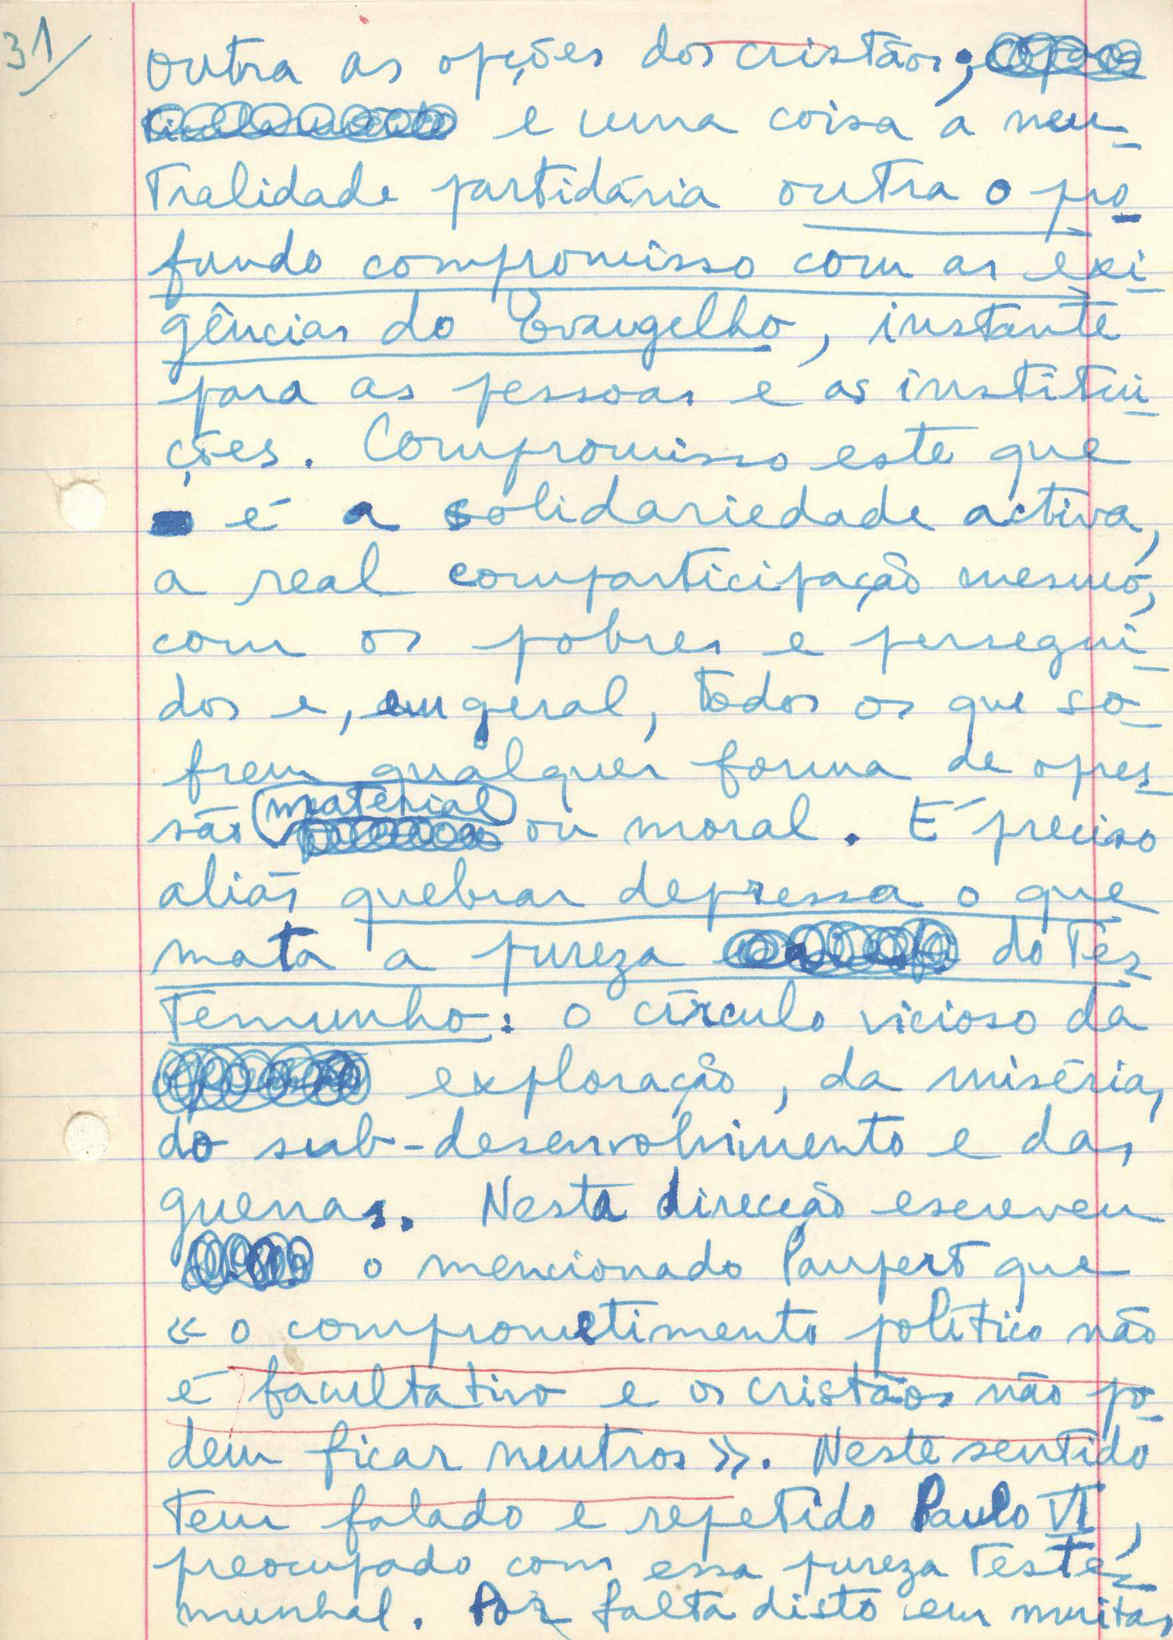 31/
outra as opções dos cristãos;
e uma coisa a neu-
tralidade partidária outra o pro-
fundo compromisso com as exi-
gências do Evangelho, instante
para as pessoas e as institui-
ções. Compromisso este que
é a solidariedade activa,
a real comparticipação mesmo,
com os pobres e persegui-
dos e, em geral, todos os que so-
frem qualquer forma de opres-
são material ou moral. É preciso
aliás quebrar depressa o que
mata a pureza do Tes-
temunho: o círculo vicioso da
exploração, da miséria,
do sub-desenvolvimento e das
guerras. Nesta direcção escreveu
o mencionado Paupert que
« o comprometimento político não
é facultativo e os cristãos não po-
dem ficar neutros ». Neste sentido
tem falado e repetido Paulo VI,
preocupado com essa pureza teste-
munhal. Por falta disto em muitas